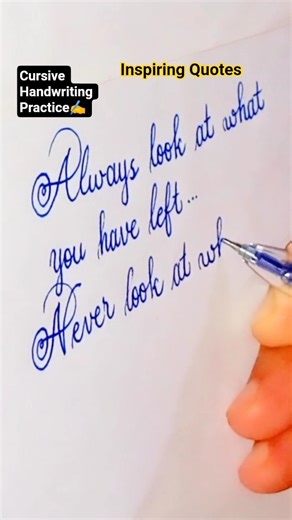 Inspiring Quotes
Cursive
Handwriting
Practice✍️
Always look at what
you have left...
Never look at wh